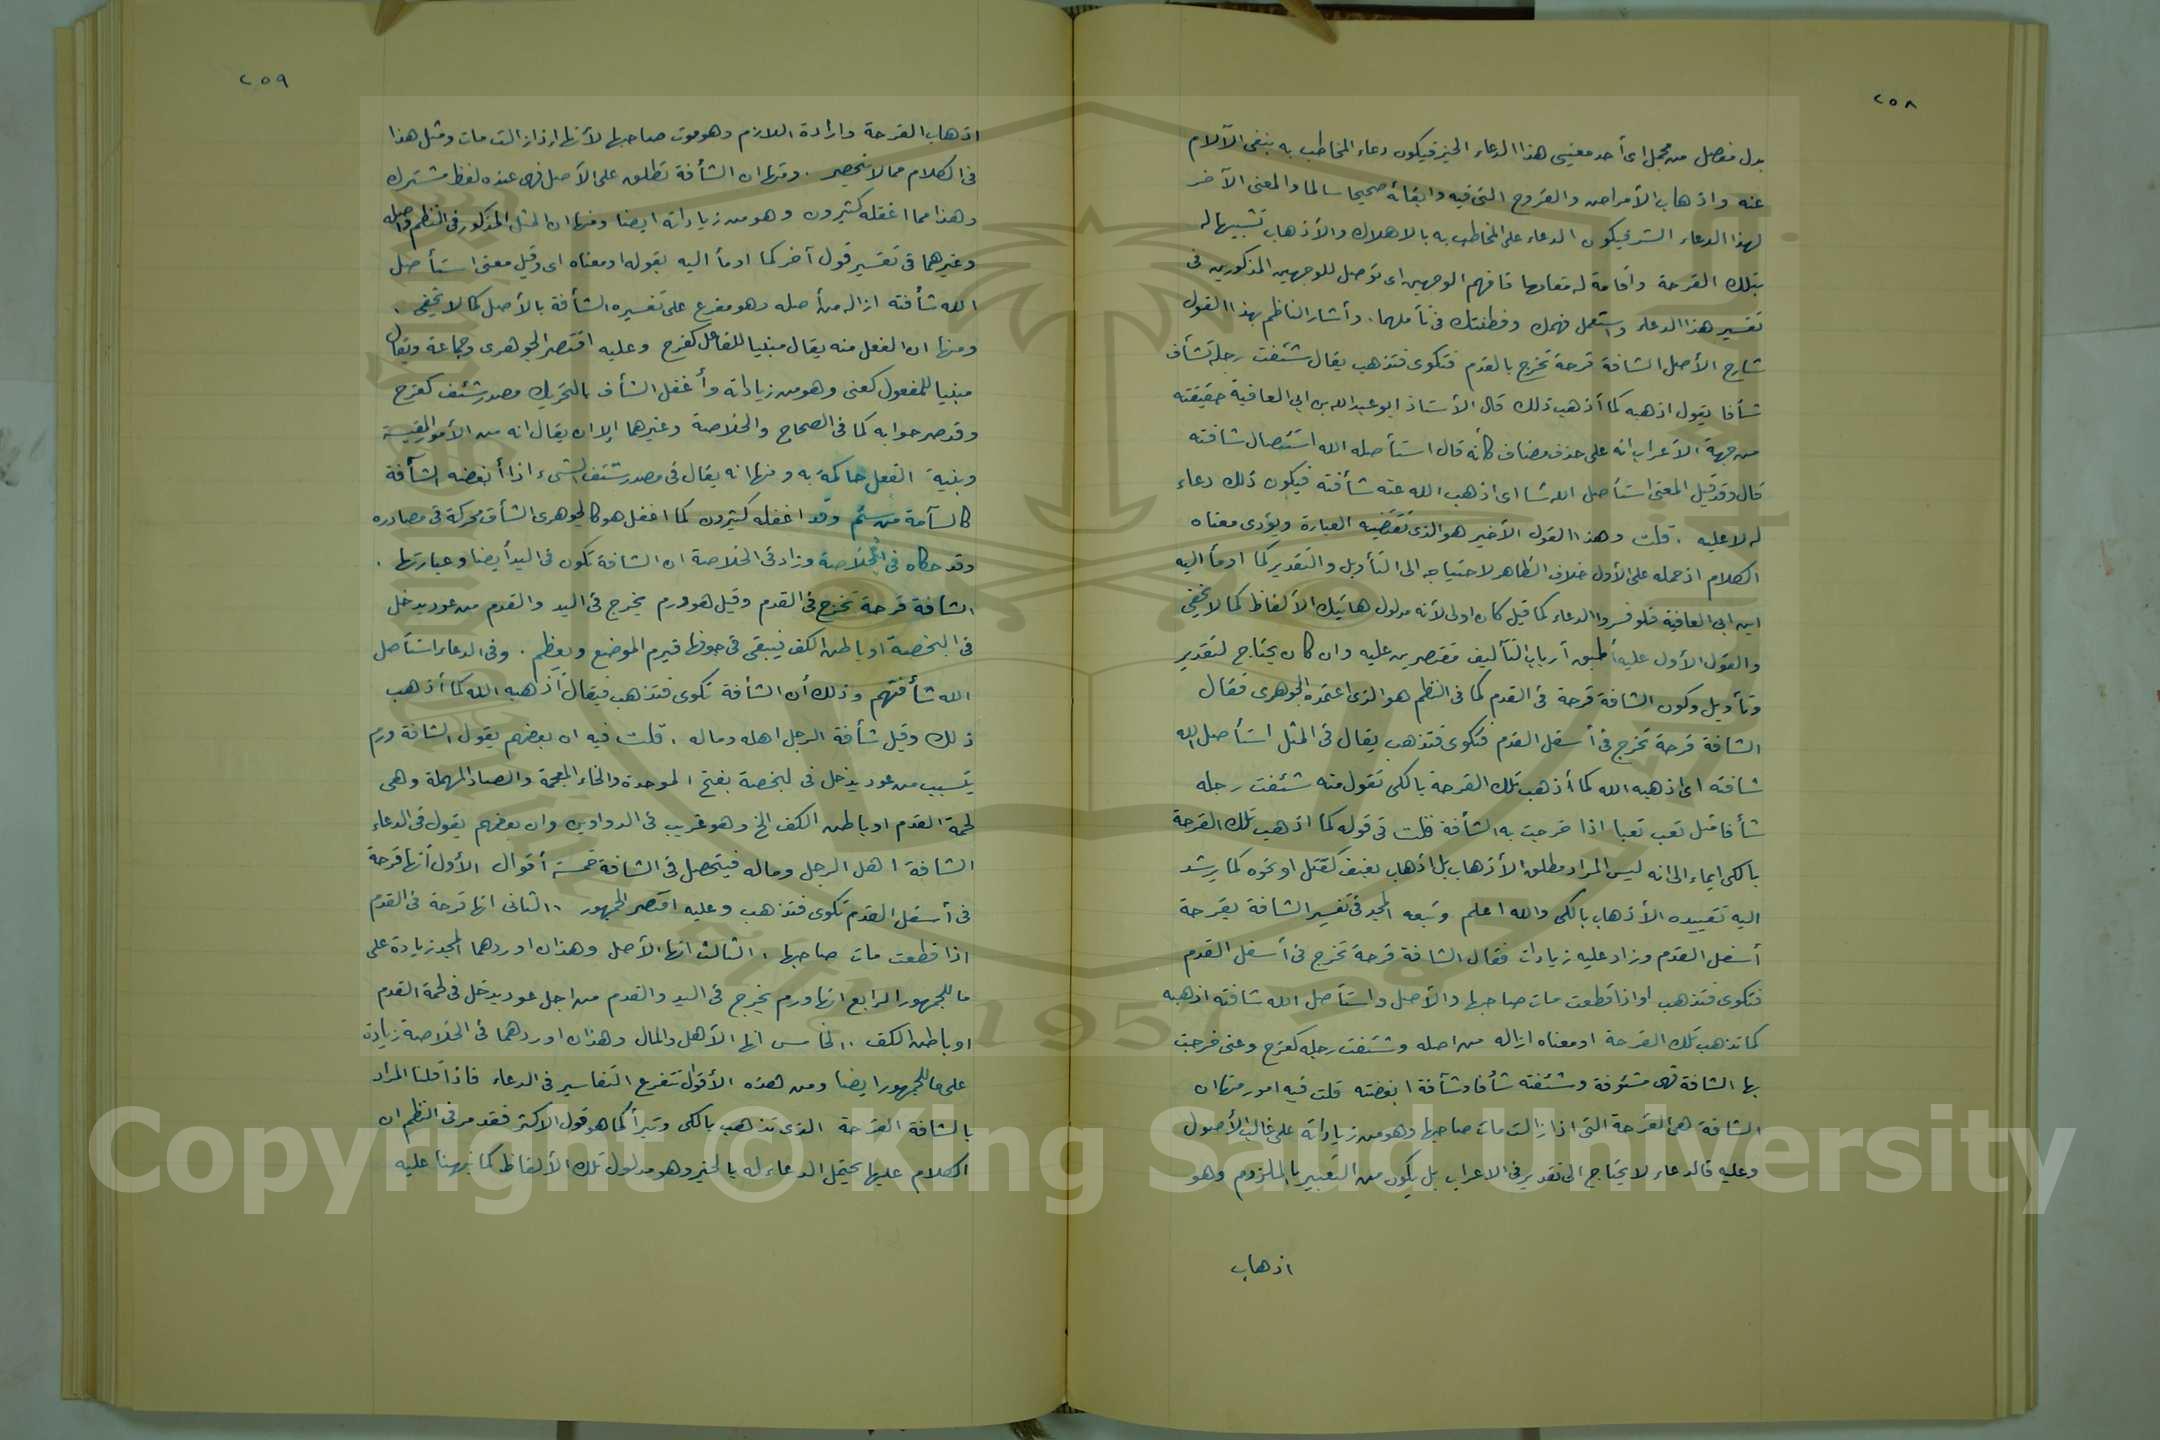 ٢٥٨
بدل مفصل من مجمل اى أحد معنيى هذا الدعاء الخير فيكون دعاء المخاطب به بنفى الآلام
عنه واذهاب الأمراض والقروح التى فيه وابقائه صحيحا سالما والمعنى الآخر
لهذا الدعاء الشر فيكون الدعاء على المخاطب به بالاهلاك والأذهاب تشبيها له
بتلك القرحة واقامة له مقامها فافهم الوجهين اى توصل للوجهين المذكورين فى
تفسير هذا الدعاء واستعمل فهمك وفطنتك فى تأملهما . وأشار الناظم بهذا القول
شارح الأصل الشافة قرحة تخرج بالقدم فتكوى فتذهب يقال شئفت رجله تشأف
شأفا يقول اذهبه كما أذهب ذلك قال الأستاذ ابو عبد الله بن ابى العافية حقيقته
من جهة الاعراب انه على حذف مضاف كأنه قال استأصله الله استئصال شافته
قال وقد قيل المعنى استأصل الله شا اى اذهب الله عنه شأفته فيكون ذلك دعاء
له لا عليه . قلت وهذا القول الأخير هو الذى تقتضيه العبارة ويؤدى معناه
الكلام اذ حمله على الأول خلاف الظاهر لاحتياجه الى التأويل والتقدير كما اومأ اليه
ابن ابى العافية فلو فسروا الدعاء كما قيل كان اولى لأنه مدلول هاتيك الألفاظ كما لا يخفى
والقول الأول عليه أطبق أرباب التأليف مقتصرين عليه وان كان يحتاج لتقدير
وتأويل وكون الشافة قرحة فى القدم كما فى النظم هو الذى اعتمده الجوهرى فقال
الشافة قرحة تخرج فى أسفل القدم فتكوى فتذهب يقال فى المثل استأصل الله
شافته اى اذهبه الله كما أذهب تلك القرحة بالكى تقول منه شئفت رجله
شأفا مثل تعب تعبا اذا خرجت به الشأفة قلت فى قوله كما اذهب تلك القرحة
بالكى ايماء الى انه ليس المراد مطلق الأذهاب بل اذهاب بعنف كقتل او نحوه كما يرشد
اليه تقييده الأذهاب بالكى والله اعلم وتبعه المجد فى تفسير الشافة بقرحة
أسفل القدم وزاد عليه زيادات فقال الشافة قرحة تخرج فى أسفل القدم
فتكوى فتذهب او اذا قطعت مات صاحبها والأصل واستأصل الله شافته اذهبه
كما تذهب تلك القرحة او معناه ازاله من اصله وشئفت رجله كفرح وعنى خرجت
بها الشافة فهى مشئوفة وشئفته شأفا وشآفة ابغضته قلت فيه امور منها ان
الشافة هى القرحة التى اذا زالت مات صاحبها وهو من زياداته على غالب الأصول
وعليه فالدعاء لا يحتاج الى تقدير فى الاعراب بل يكون من التعبير بالملزوم وهو
اذهاب
٢٥٩
اذهاب القرحة وارادة اللازم وهو موت صاحبها لأنها اذا زالت مات ومثل هذا
فى الكلام مما لا ينحصر . ومنها ان الشأفة تطلق على الأصل فهى عنده لفظ مشترك
وهذا مما اغفله كثيرون وهو من زياداته ايضا ومنها ان المثل المذكور فى النظم واصله
وغيرهما فى تفسير قول آخر كما اومأ اليه بقوله او معناه اى وقيل معنى استأصل
الله شأفته ازاله من أصله وهو مفرع على تفسيره الشأفة بالأصل كما لا يخفى .
ومنها ان الفعل منه يقال مبنيا للفاعل كفرح وعليه اقتصر الجوهرى وجماعة ويقال
مبنيا للمفعول كعنى وهو من زياداته وأغفل الشأف بالتحريك مصدر شئف كفرح
وقد صرحوا به كما فى الصحاح والخلاصة وغيرهما الا ان يقال انه من الأمور المقيسة
وبنية الفعل حاكمة به ومنها انه يقال فى مصدر شئف الشىء اذا أبغضه الشآفة
كالسآمة من سئم وقد اغفله كثيرون كما اغفل هو كالجوهرى الشأف محركة فى مصادره
وقد حكاه فى الخلاصة وزاد فى الخلاصة ان الشافة تكون فى اليد أيضا وعبارتها .
الشأفة قرحة تخرج فى القدم وقيل هو ورم يخرج فى اليد والقدم من عود يدخل
فى البخصة او باطن الكف فيبقى فى جوفها فيرم الموضع ويعظم . وفى الدعاء استأصل
الله شأفتهم وذلك أن الشأفة تكوى فتذهب فيقال أذهبه الله كما أذهب
ذلك وقيل شأفة الرجل اهله وماله . قلت فيه ان بعضهم يقول الشافة ورم
يتسبب من عود يدخل فى لبخصة بفتح الموحدة والخاء المعجمة والصاد المهملة وهى
لحمة القدم او باطن الكف الخ وهو غريب فى الدواوين وان بعضهم يقول فى الدعاء
الشافة اهل الرجل وماله فيتحصل فى الشافة خمسة أقوال الأول أنها قرحة
فى أسفل القدم تكوى فتذهب وعليه اقتصر الجمهور .. الثانى انها قرحة فى القدم
اذا قطعت مات صاحبها . الثالث انها الأصل وهذان اوردهما المجد زيادة على
ما للجمهور الرابع انها ورم يخرج فى اليد والقدم من اجل عود يدخل فى لحمة القدم
او باطن الكف .. الخامس انها الأهل والمال وهذان اوردهما فى الخلاصة زيادة
على ما للجمهور ايضا ومن هذه الأقوال تتفرع التفاسير فى الدعاء فاذا قلنا المراد
بالشافة القرحة الذى تذهب بالكى وتبرأ كما هو قول الاكثر فقد مر فى النظم ان
الكلام عليها يحتمل الدعاء له بالخير وهو مدلول تلك الألفاظ كما نبهنا عليه
Copyright © King Saud University
1957